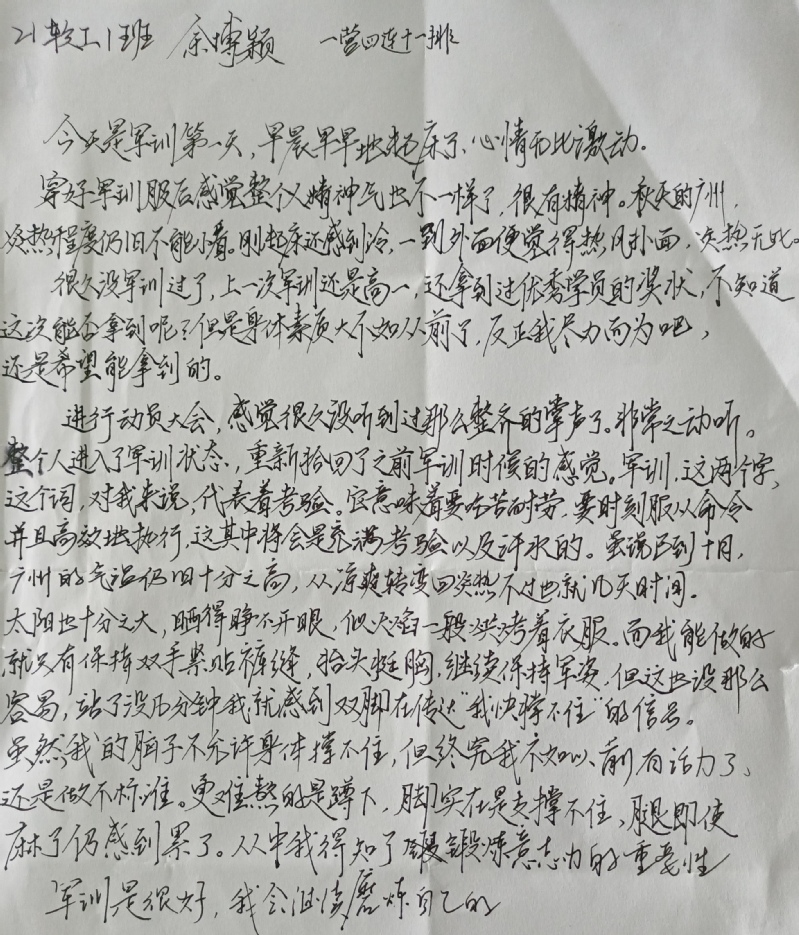 21软工1班 余博颖 一营四连十一排
今天是军训第一天,早晨早早地起床了、心情无比激动.
穿好军训服后感觉整个人精神气也不一样了,很有精神。秋天的广州,
炎热程度仍旧不能小看。刚起床还感到冷,一到外面便觉得热风扑面,炎热无比。
很久没军训过了,上一次军训还是高一,还拿到过优秀学员的奖状,不知道
这次能否拿到呢?但是身体素质大不如从前了,反正我尽力而为吧,
还是希望能拿到的。
进行动员大会,感觉很久没听到过那么整齐的掌声了。非常之动听。
整个人进入了军训状态,重新拾回了之前军训时候的感觉。军训,这两个字,
这个词,对我来说,代表着考验。它意味着要吃苦耐劳,要时刻服从命令
并且高效地执行,这其中将会是充满考验以及汗水的。虽说已到十月,
广州的气温仍旧十分之高,从凉爽转变回炎热不过也就几天时间.
太阳也十分之大,晒得睁不开眼,似火焰一般烘烤着衣服。而我能做的
就只有保持双手紧贴裤缝,抬头挺胸,继续保持军姿,但这也没那么
容易,站了没几分钟我就感到双脚在传达“我快撑不住”的信号。
虽然我的脑子不允许身体撑不住,但终究我不如以前有活力了、
还是做不标准。更难熬的是蹲下,脚实在是支撑不住,腿即使
麻了仍感到累了。从中我得知了锻炼意志力的重要性
军训是很好,我会继续磨炼自己的